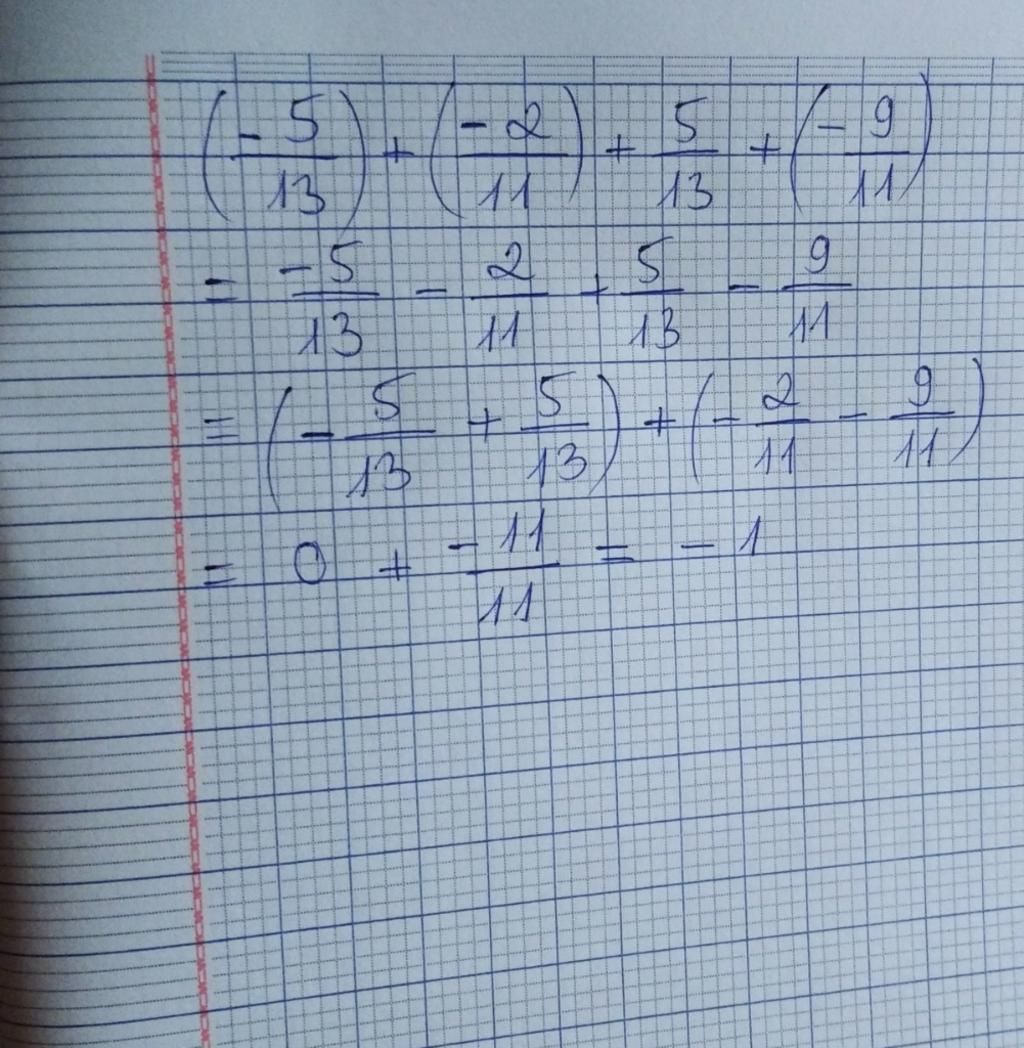 (-5/13) + (-2/11) + 5/13 + (-9/11)
= -5/13 - 2/11 + 5/13 - 9/11
= (-5/13 + 5/13) + (-2/11 - 9/11)
= 0 + -11/11 = -1